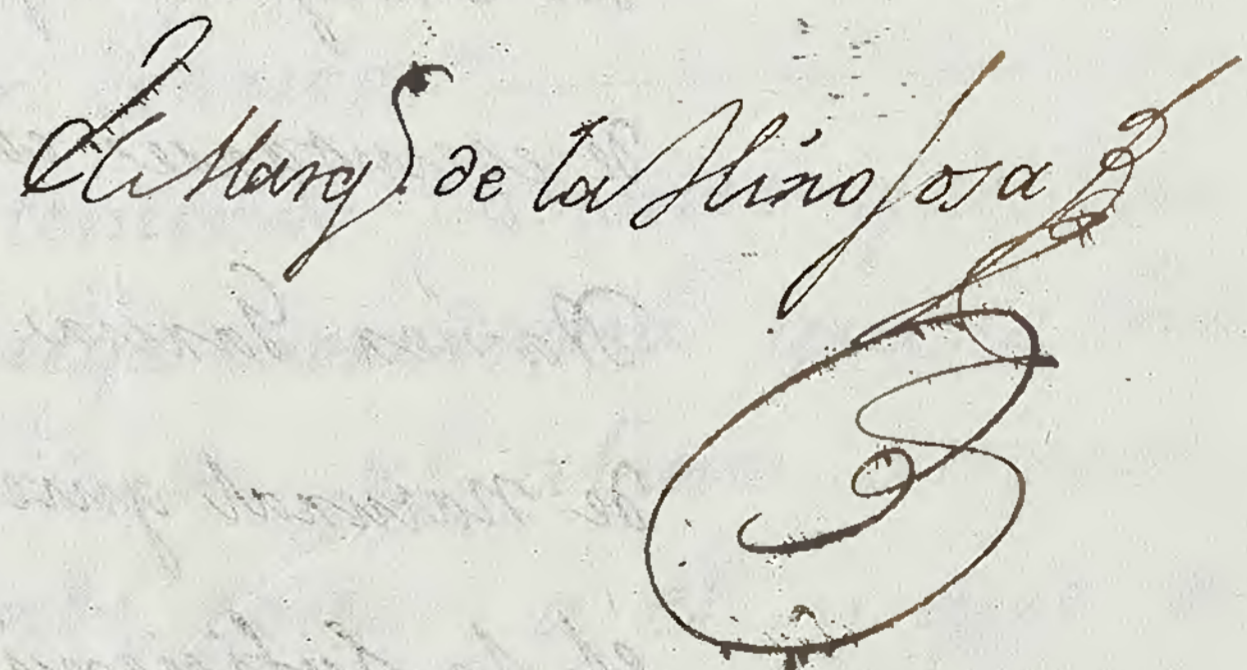 El Marqs de la Hinojosa